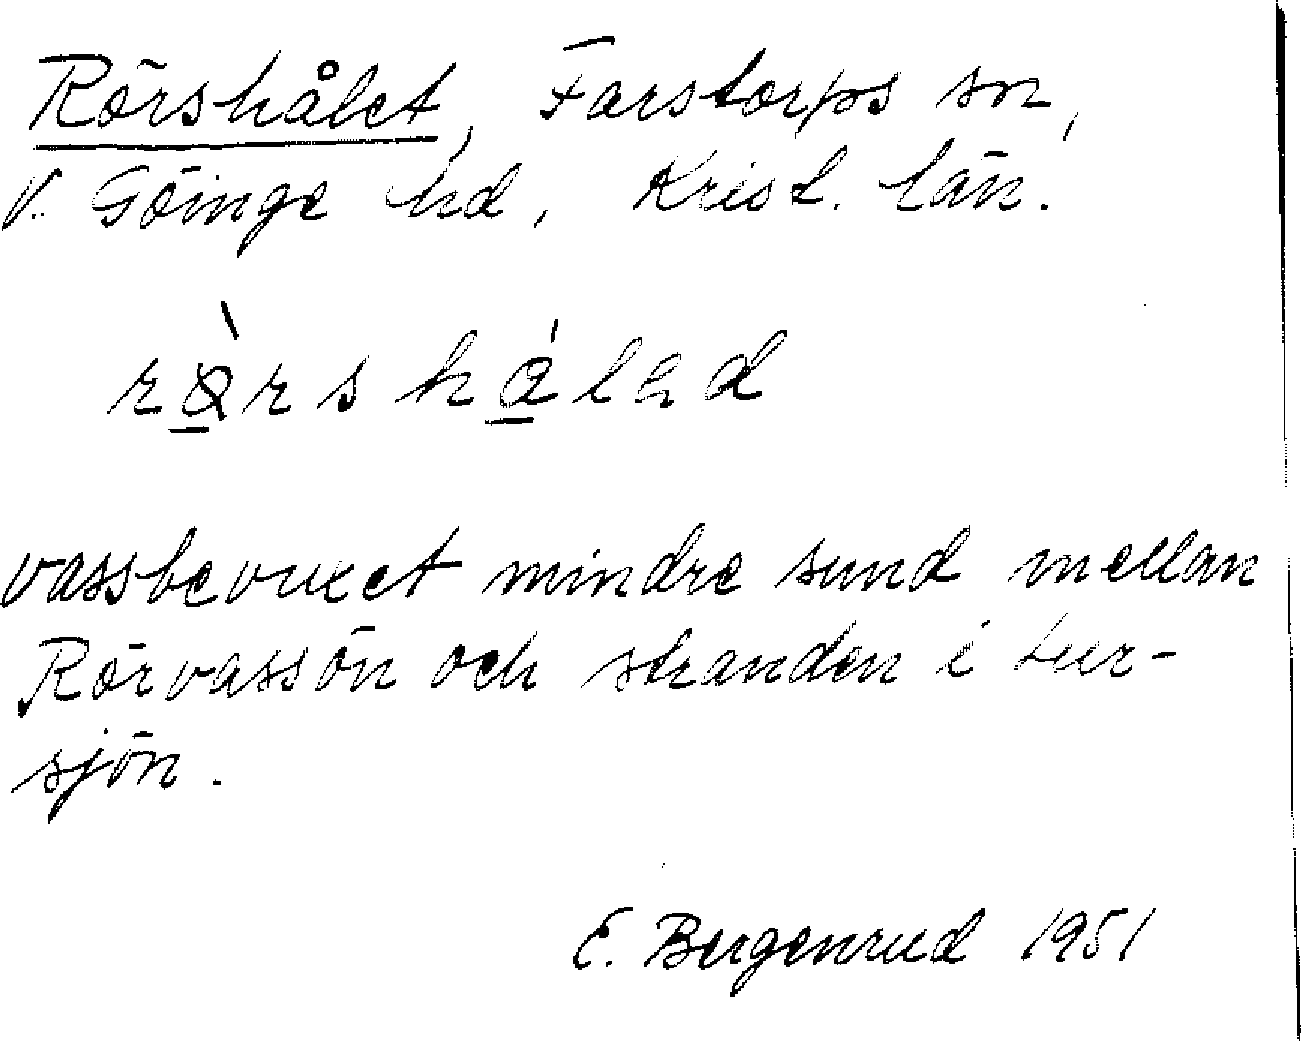 Rörshålet, Farstorps sn,
V. Göinge hd, Krist. län.
vassbevuxet mindre sund mellan
Rörvassön och stranden i Luer-
sjön.
E. Bergenrud 1951